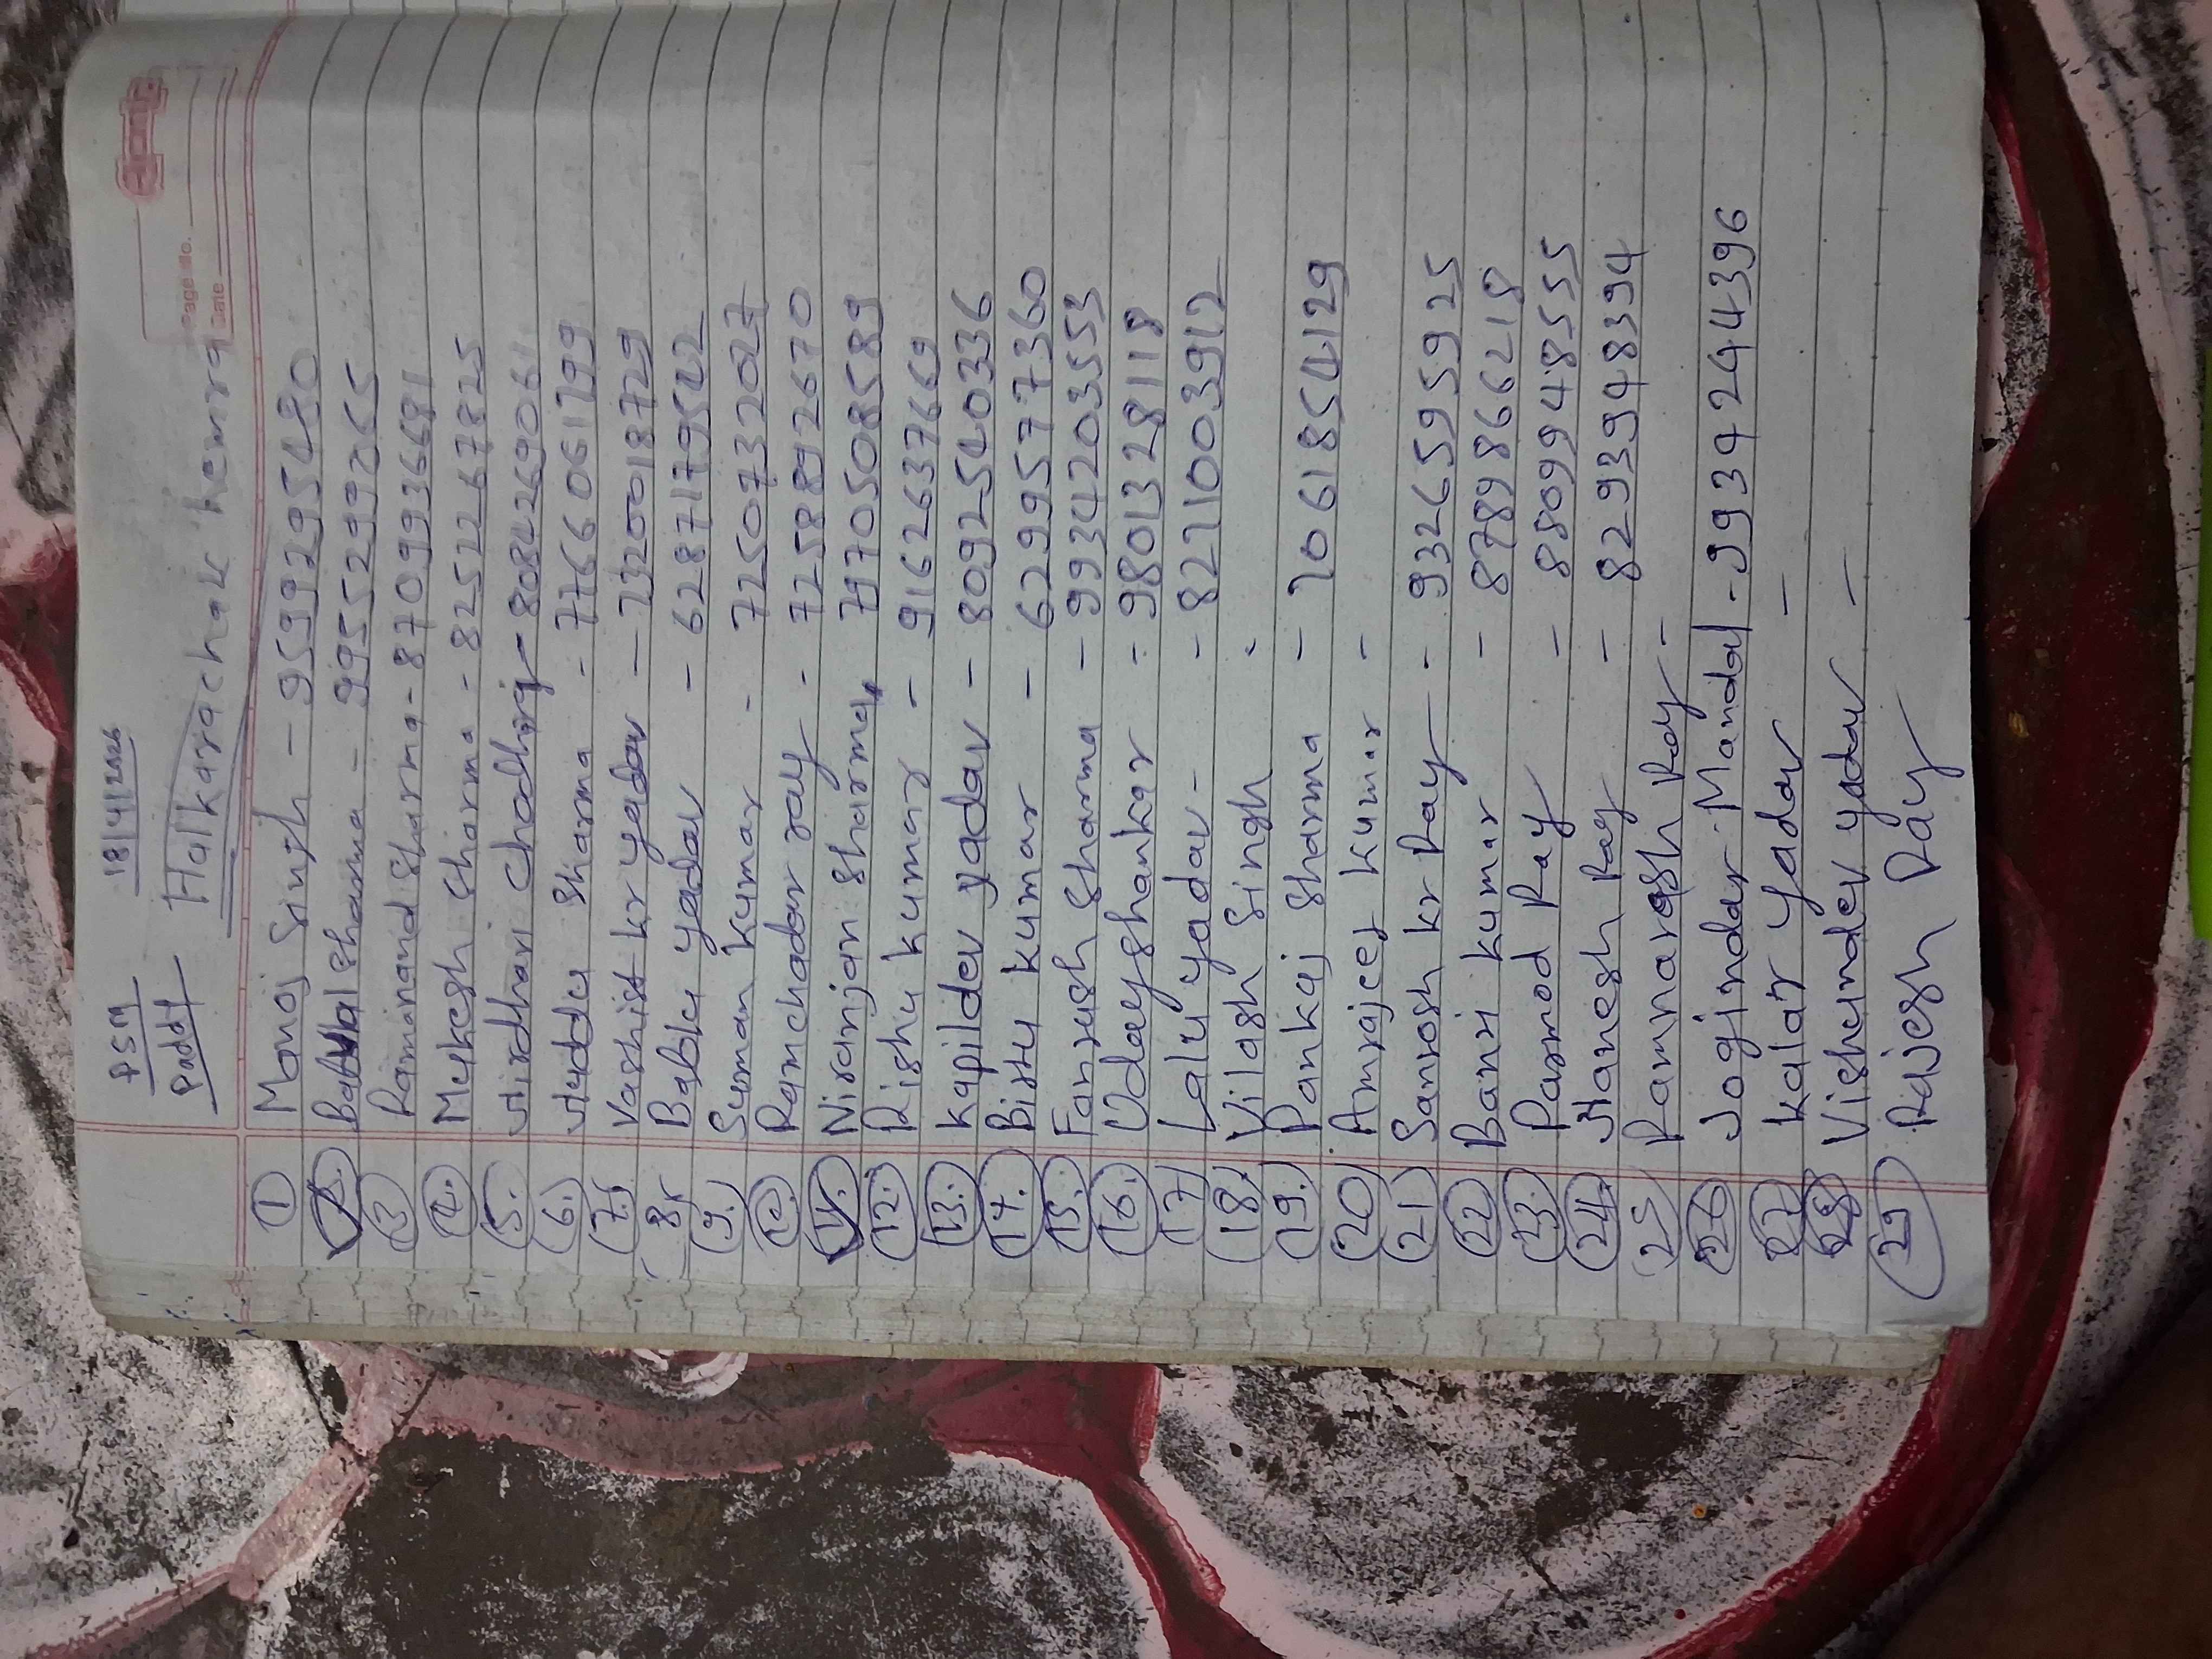 PSM 18/4/2026
Paddy Halkarachak hemra
Page No.
Date
1 Manoj Singh - 9599729548 0
2. Babal Sharma - 9955299265
3 Ramanand Sharma - 8709936681
4. Mukesh Sharma - 8252267825
5. Jirdhari Chodhary - 8084269061
6. Juddu Sharma - 7766061799
7. Vashist kr yadav - 7320018729
8 Bablu yadav - 6287179542
9. Suman kumar - 7250732027
10. Ramchadar ray - 7258892670
11. Niranjan Sharma, 7705 08 85 89
12. Rishu kumar - 9162637669
13. Kapildev yadav - 8092540336
14. Bittu kumar - 6299577360
15. Fantush Sharma - 9934203553
16. Uday Shankar - 9801328118
17 Lalu yadav - - 8211003912
18. Vilash Singh -
19. Pankaj Sharma - 7061854129
20 Amrajeet kumar -
21 Santosh kr Ray - 9326595925
22 Banti kumar - 8789866218
23. Parmod Ray - 8809948555
24. Manesh Ray - 8293948394
25 Ramnaresh Ray -
26 Joginder Mandal - 9934244396
27 Kalar yadav -
28 Vishumdev yadav -
29 Rajesh Ray